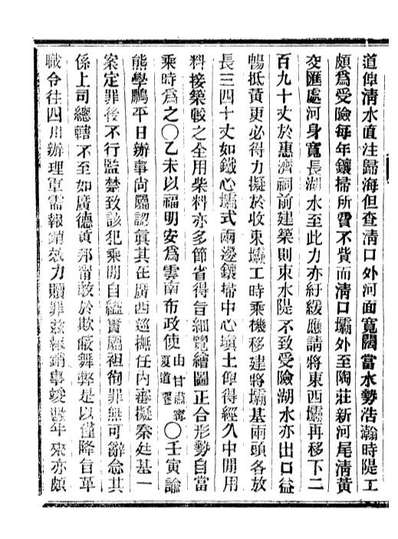 道俾清水直注歸海但查清口外河面寬闊當水勢浩瀚時隄工
頗為受險每年鑲掃所費不貲而清口壩外至陶莊新河尾清黃
交匯處河身寬長湖水至此力亦紆緩應請將東西壩再移下二
百九十丈於惠濟祠前建築則束水隄不致受險湖水亦出口益
暢抵黃更必得力擬於收束壩工時乘機移建將壩基兩頭各放
長三四十丈如鐵心壩式兩邊鑲掃中心填土俾得經久中間用
料接築較之全用柴料亦多節省得旨細覽繪圖正合形勢自當
乘時為之〇乙未以福明安為雲南布政使由甘肅寧夏道署〇壬寅諭
熊學鵬平日辦事尚屬認眞其在廣西巡撫任內濫擬秦廷基一
案定罪後不行監禁致該犯乘間自縊實屬袒徇罪無可辭念其
係上司總轄不至如廣德黃邦甯敢於欺蔽舞弊是以僅降旨革
職令往四川辦理軍需報銷效力贖罪茲報銷事竣數年來亦頗